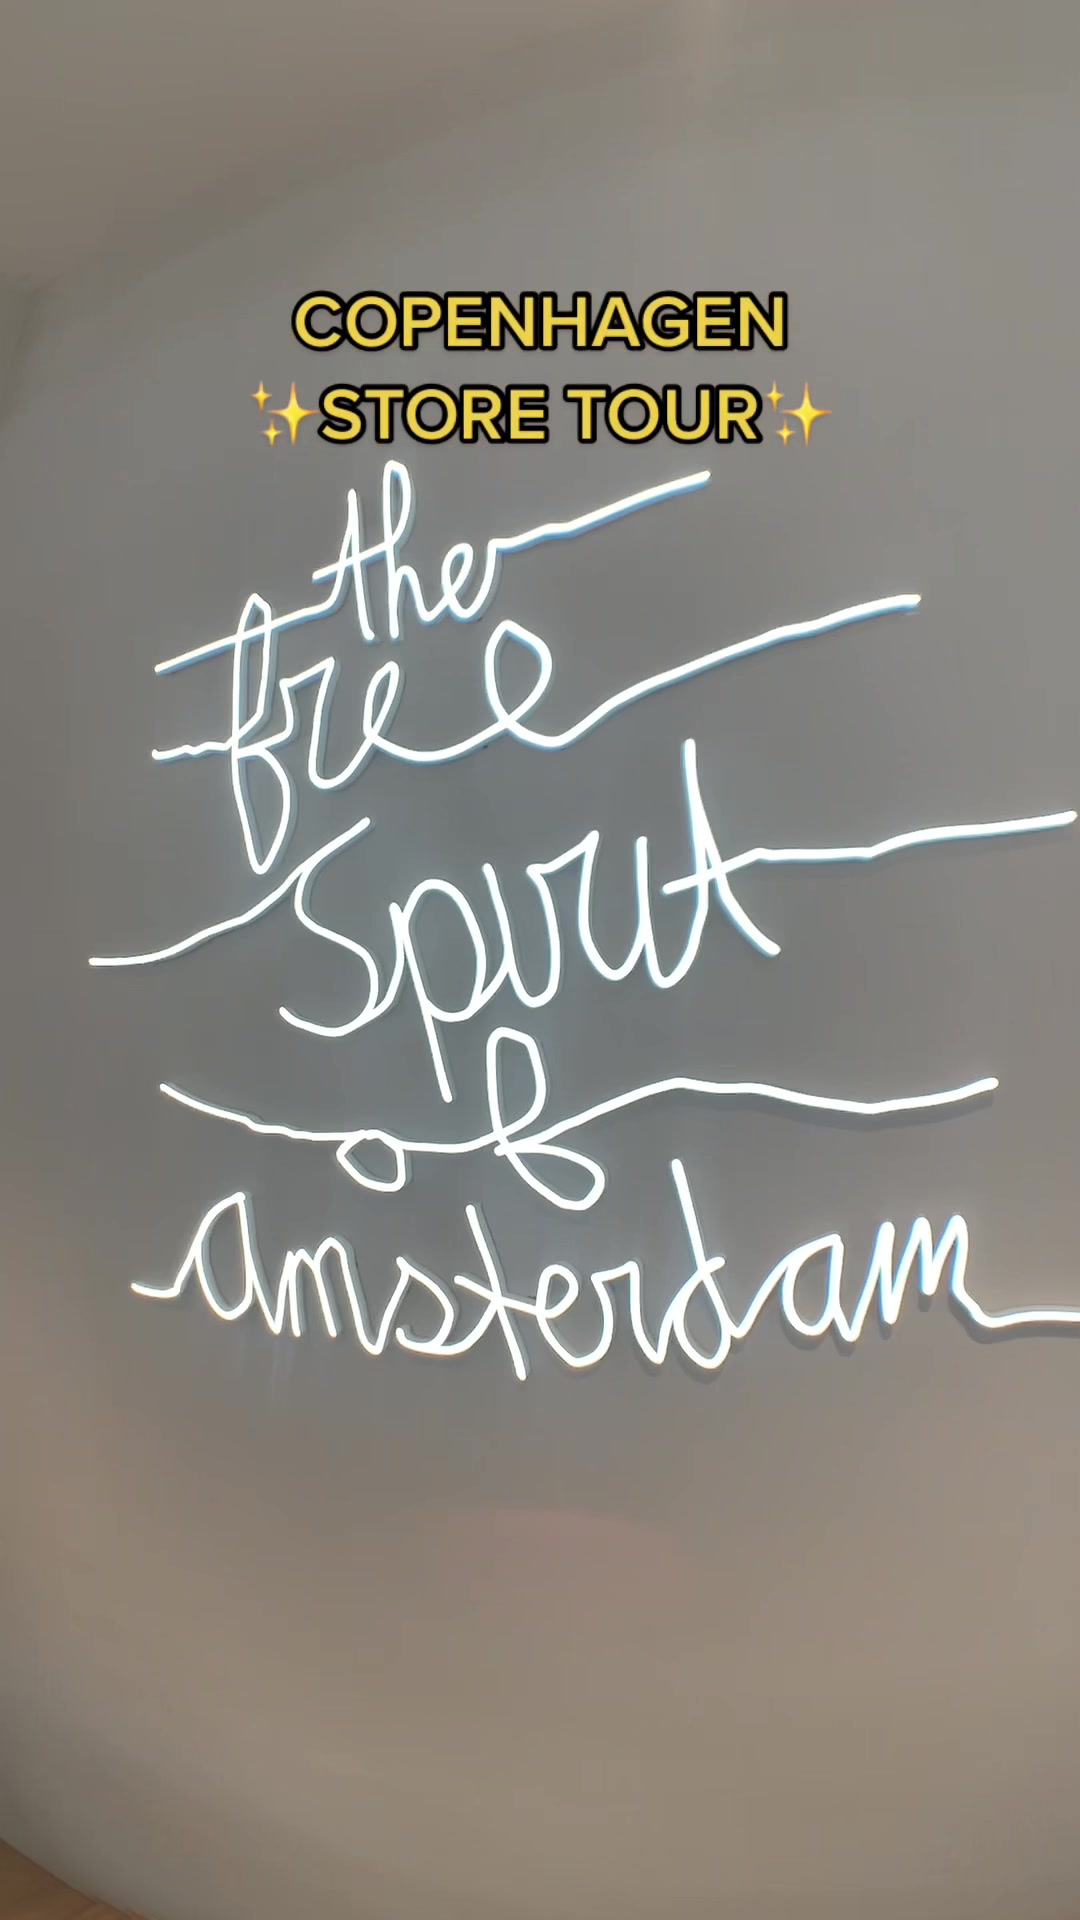 COPENHAGEN
✨STORE TOUR✨
the
free
Spirit
of
amsterdam